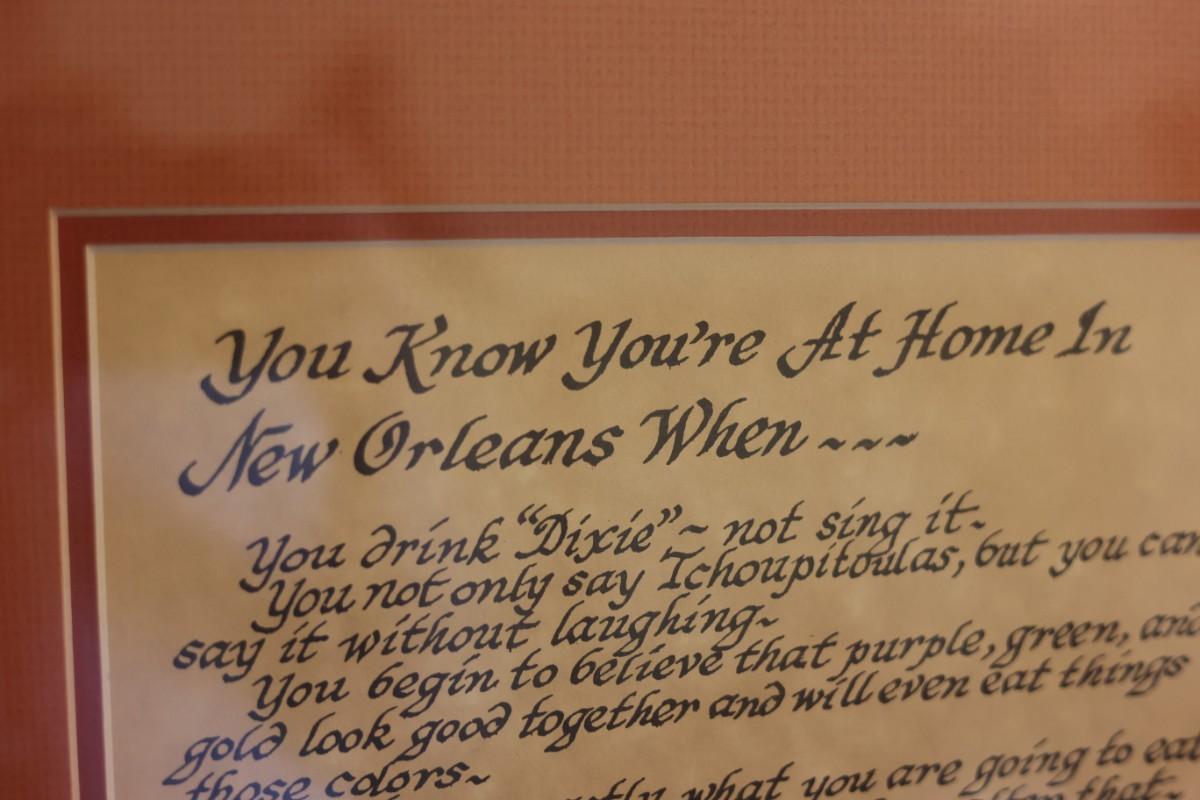 You Know You're At Home In
New Orleans When ~~~
You drink "Dixie" ~ not sing it~
You not only say Tchoupitoulas, but you can
say it without laughing~
You begin to believe that purple, green, and
gold look good together and will even eat things
those colors~
what you are going to eat
that~